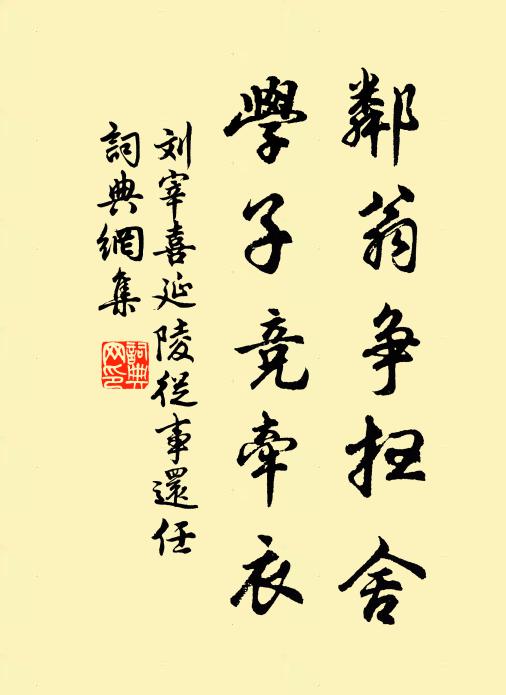 鄰翁争扫舍
學子竞牽衣
刘宰喜延陵從事還任
詞典網集
詞典
网印